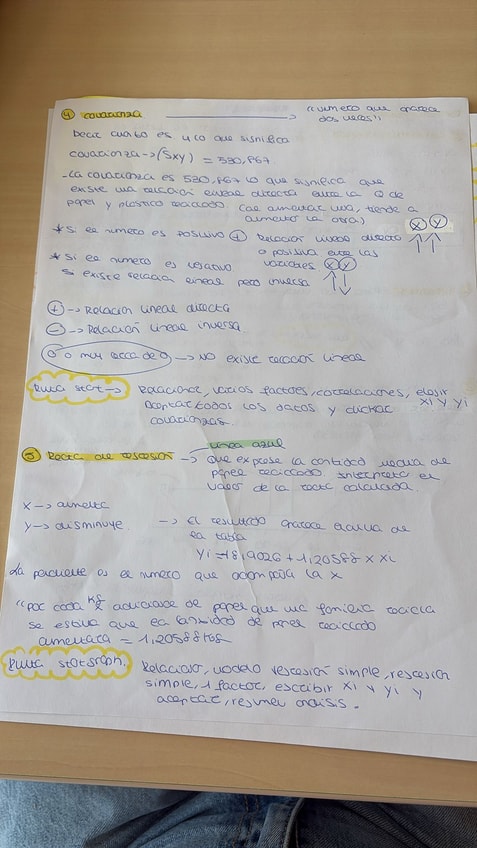 4 covarianza → "número que aparece
dos veces"
Decir cuánto es y lo que significa
covarianza → (Sxy) = 530,867
- La covarianza es 530,867 lo que significa que
existe una relación lineal directa entre la Q de
papel y plástico reciclado (al aumentar una, tiende a
aumentar la otra)
* Si el número es positivo + Relación lineal directa
o positiva entre las
variables X Y
* Si el número es negativo
existe relación lineal pero inversa
+ → Relación lineal directa
- → Relación lineal inversa
0 o muy cerca de 0 → No existe relación lineal
Ruta stat → Relacionar, varios factores, correlaciones, elegir
xi y yi
aceptar todos los datos y clickar
covarianzas.
5 Recta de regresión → línea azul
que exprese la cantidad media de
papel reciclado interpreta el
valor de la recta calculada.
X → aumenta
Y → disminuye. → El resultado aparece encima de
la tabla
yi = 18,9026 + 1,20588 x xi
La pendiente es el número que acompaña la x
"por cada kg adicional de papel que una familia recicla
se estima que la cantidad de papel reciclado
aumentara = 1,20588 kgs
Ruta statgraph. Relacionar, modelo regresión simple, regresión
simple, 1 factor, escribir xi y yi y
aceptar, resumen análisis.